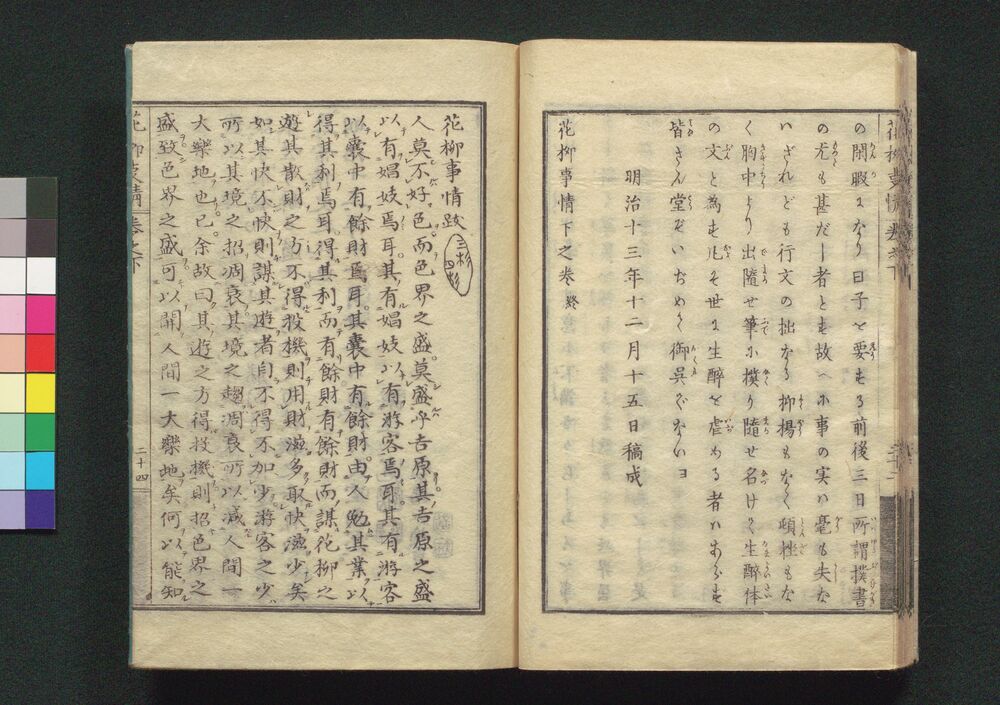 の閑暇になり日子を要する前後三日所謂撲書
の尤も甚だしき者とす故へに事の実ハ毫も失な
いざれども行文の拙なる抑揚もなく頓挫もな
く胸中より出随せ筆に撲り随せ名けて生酔体
の文と為す凡そ世に生酔を虐める者ハあらず
皆さん堂ぞいぢめて御呉ぐないヨ
明治十三年十二月十五日稿成
花柳事情下之巻終
花柳事情跋
人莫不好色而色界之盛莫盛乎吉原其吉原之盛
以有娼妓焉耳其有娼妓以有游客焉耳其有游客
以嚢中有餘財焉耳其嚢中有餘財由人勉其業以
得其利焉耳得其利而有餘財有餘財而謀花柳之
遊其散財之方不得投機則用財漁多取快漁少矣
如其快不快則謀其遊者自不得不加少游客之少
所以其境之招凋衰其境之趨凋衰所以減人間一
大樂地也已余故曰其遊之方得投機則招色界之
盛致色界之盛可以開人間一大樂地矣何以能知
花柳事情 巻之下
二十四